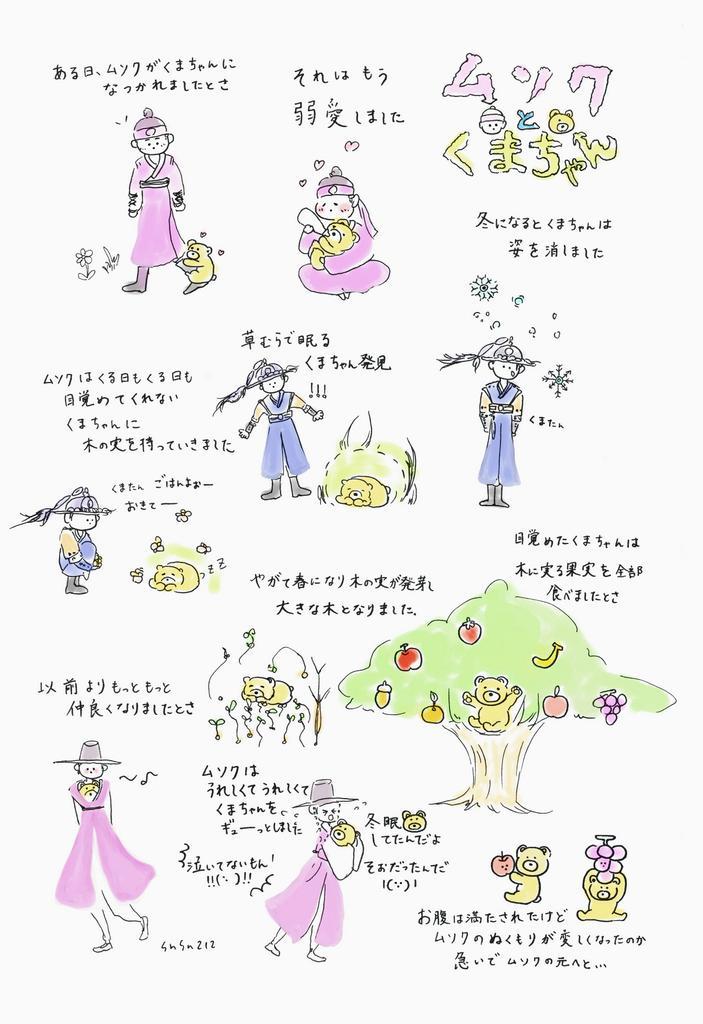 ムソク
と
くまちゃん
ある日、ムソクがくまちゃんに
なつかれましたとさ
それはもう
溺愛しました
冬になるとくまちゃんは
姿を消しました
くまたん
草むらで眠る
くまちゃん発見
!!!
ムソクはくる日もくる日も
目覚めてくれない
くまちゃんに
木の実を持っていきました
くまたん ごはんよぉー
おきてー
zzZ
やがて春になり木の実が発芽し
大きな木となりました。
目覚めたくまちゃんは
木に実る果実を全部
食べましたとさ
お腹は満たされたけど
ムソクのぬくもりが恋しくなったのか
急いでムソクの元へと...
ムソクは
うれしくてうれしくて
くまちゃんを
ギューっとしました
冬眠
してたんだよ
そおだったんだ
!(・・)!
泣いてないもん!
!!(・・)!!
以前よりもっともっと
仲良くなりましたとさ
snsn212